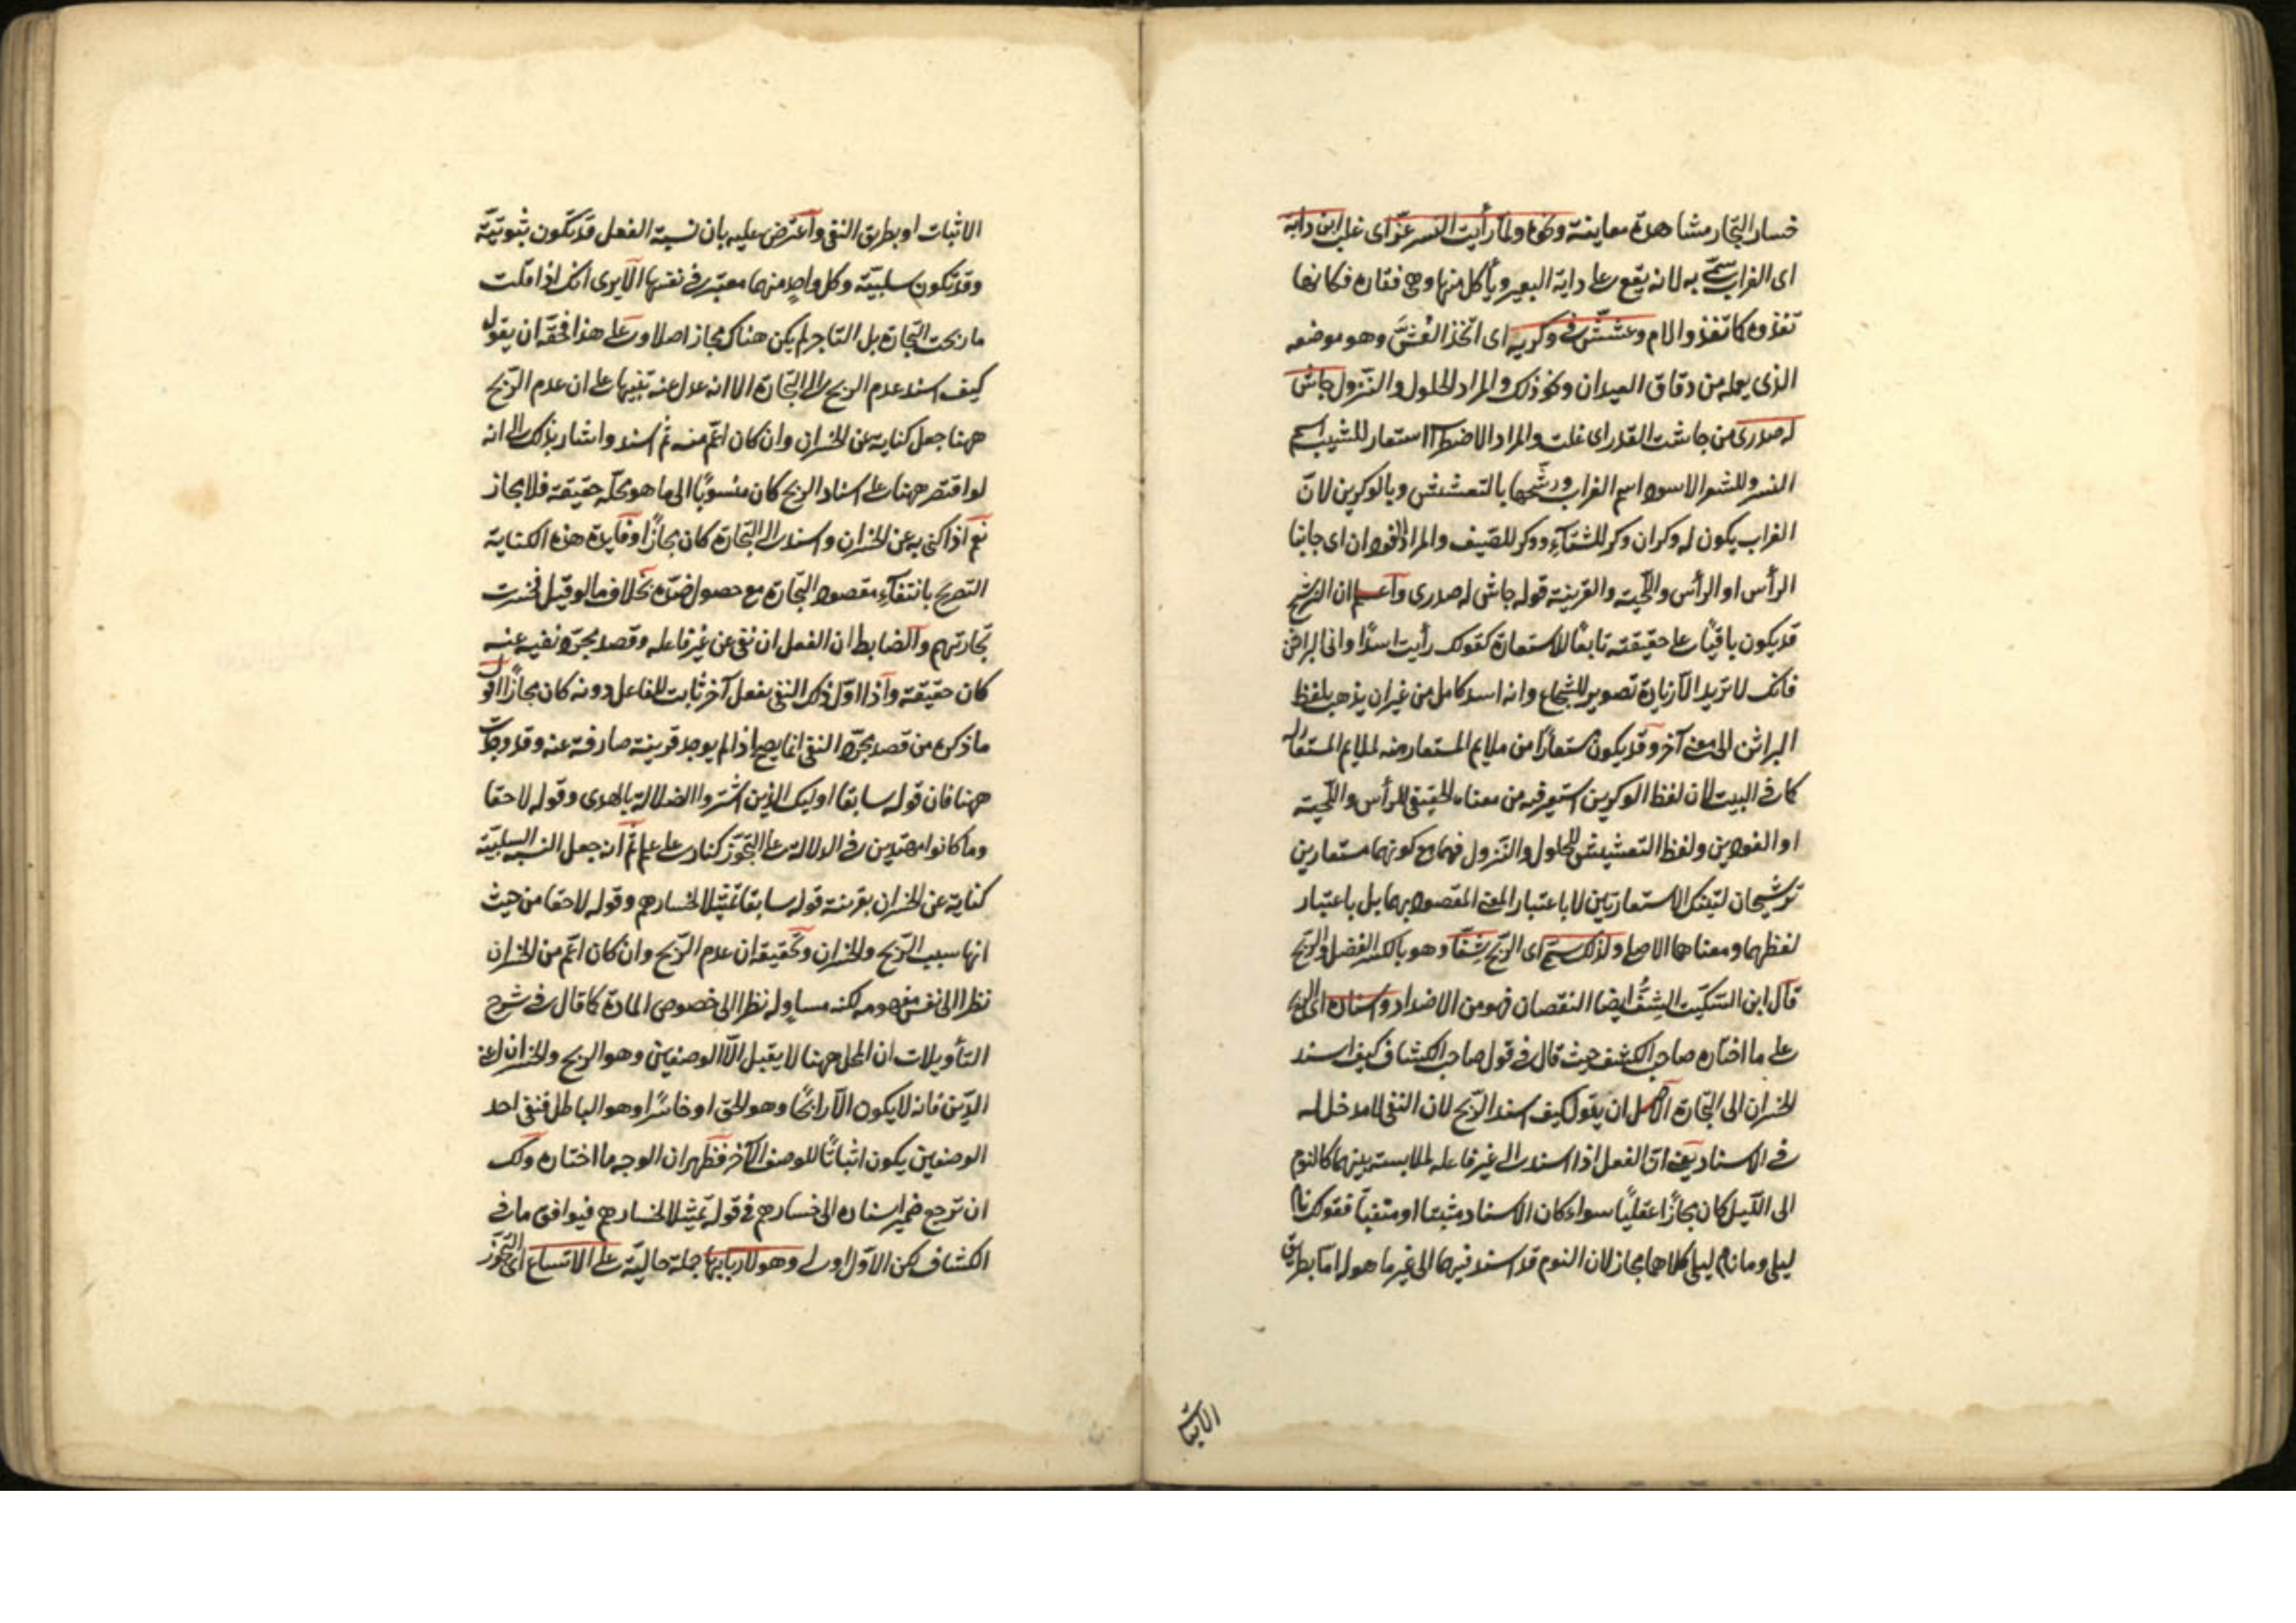 خسار التجار مشاهدة معاينة ونحوه ولما رأيت النسر عز اى غلب ابن داية
اى الغراب سمى به لانه يقع على داية البعير ويأكل منها وهى فقاره فكانها
تغذوه كما تغذو الام وعشش فى وكريه اى اتخذ العش وهو موضعه
الذى يعمله من دقاق العيدان ونحو ذلك والمراد الحلول والنزول جاش
له صدرى من جاشت القدر اى غلت والمراد الاضطراب استعار للشيب اسم
النسر وللشعر الاسود اسم الغراب ورشحها بالتعشش وبالوكرين لان
الغراب يكون له وكران وكر للشتاء ووكر للصيف والمراد الفودان اى جانبا
الرأس او الرأس واللحية والقرينة قوله جاش له صدرى واعلم ان الترشيح
قد يكون باقيا على حقيقته تابعا للاستعارة كقولك رأيت اسدا وافى البراثن
فانك لا تريد الا زيادة تصوير للشجاع وانه اسد كامل من غير ان يذهب بلفظ
البراثن الى معنى آخر وقد يكون مستعارا من ملايم المستعار منه لملايم المستعار له
كما فى البيت لان لفظ الوكرين استعير فيه من معناه الحقيقى للرأس واللحية
او الفودين ولفظ التعشيش للحلول والنزول فهما مع كونهما مستعارين
ترشيحان لتينك الاستعارتين لا باعتبار المعنى المقصود بهما بل باعتبار
لفظهما ومعناهما الاصلى ولذلك سمى اى الربح شفا وهو بالكسر الفضل والربح
قال ابن السكيت الشف ايضا النقصان فهو من الاضداد واسناده اى الربح
على ما اختاره صاحب الكشف حيث قال فى قول صاحب الكشاف كيف اسند
الخسران الى التجارة الاصل ان يقول كيف اسند الربح لان النفى لا مدخل له
فى الاسناد يعنى ان الفعل اذا اسند الى غير فاعله لملابسة بينهما كالنوم
الى الليل كان مجازا عقليا سواء كان الاسناد مثبتا او منفيا فقولك نام
ليلى وما نام ليلى كلاهما مجاز لان النوم قد اسند فيهما الى غير ما هو له اما بطريق
الاثبات
الاثبات او بطريق النفى واعترض عليه بان نسبة الفعل قد تكون ثبوتية
وقد تكون سلبية وكل واحد منهما معتبر فى نفسها الا يرى انك اذا قلت
ما ربحت التجارة بل التاجر لم يكن هناك مجاز اصلا وعلى هذا فحقه ان يقول
كيف اسند عدم الربح الى التجارة الا انه عدل عنه تنبيها على ان عدم الربح
ههنا جعل كناية عن الخسران وان كان اعم منه ثم اسند واشار بذلك الى انه
لو اقتصر ههنا على اسناد الربح كان منسوبا الى ما هو محله حقيقة فلا مجاز
نعم اذا كنى به عن الخسران واسند الى التجارة كان مجازا وفايدة هذه الكناية
التصريح بانتفاء مقصود التجارة مع حصول ضده بخلاف ما لو قيل فخسرت
تجارتهم والضابط ان الفعل ان نفى عن غير فاعله وقصد مجرد نفيه عنه
كان حقيقة واذا اول ذلك النفى بفعل آخر ثابت للفاعل دونه كان مجازا اقول
ما ذكره من قصد مجرد النفى انما يصح اذا لم يوجد قرينة صارفة عنه وقد وجدت
ههنا فان قوله سابقا اوليك الذين اشتروا الضلالة بالهدى وقوله لاحقا
وما كانوا مهتدين فى الدلالة على التجوز كنار على علم ثم ان جعل النسبة السلبية
كناية عن الخسران بقرينة قوله سابقا تمثيلا لخسارهم وقوله لاحقا من حيث
انها سبب الربح والخسران وتحقيقه ان عدم الربح وان كان اعم من الخسران
نظرا الى نفس مفهومه لكنه مساو له نظرا الى خصوص المادة كما قال فى شرح
التأويلات ان المحل ههنا لا يقبل الا الوصفين وهو الربح والخسران اعنى
الدين فانه لا يكون الا رابحا وهو الحق او خاسرا وهو الباطل فنفى احد
الوصفين يكون اثباتا للوصف الآخر فظهر ان الوجه ما اختاره ولك
ان ترجع ضمير اسناده الى خسارهم فى قوله تمثيلا لخسارهم فيوافق ما فى
الكشاف لكن الاول اولى وهو لاربابها جملة حالية على الاتساع اى التجوز